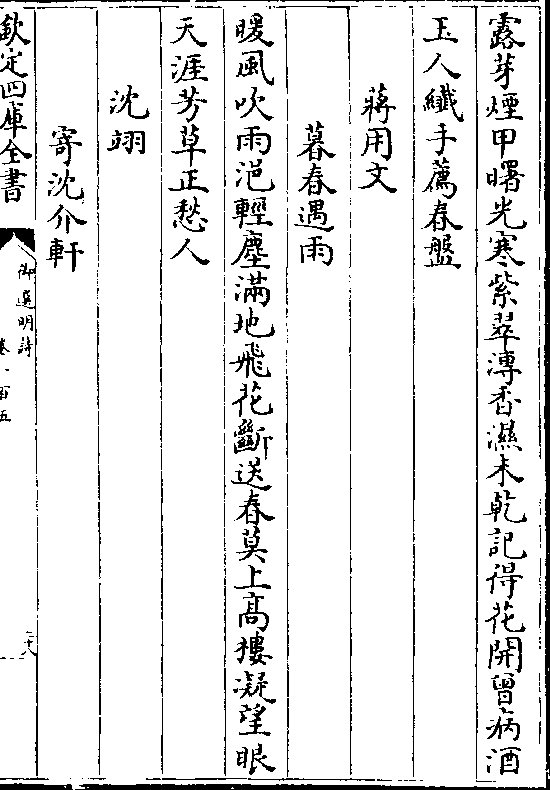 露芽煙甲曙光寒紫翠漙香濕未乾記得花開曾病酒
玉人纖手薦春盤
蔣用文
暮春遇雨
暖風吹雨浥輕塵滿地飛花斷送春莫上髙樓凝望眼
天涯芳草正愁人
沈翊
寄沈介軒
欽定四庫全書
御選明詩
卷一百五
二十八